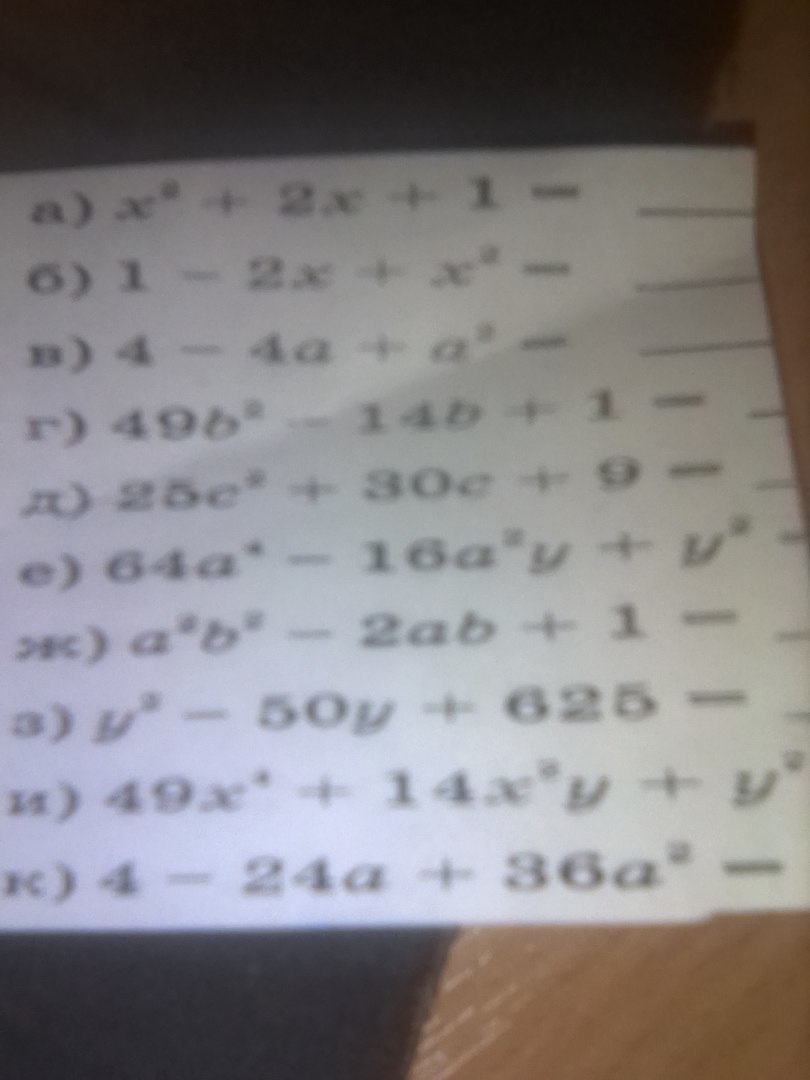 а) x² + 2x + 1 =
б) 1 − 2x + x² =
в) 4 − 4a + a² =
г) 49b² − 14b + 1 =
д) 25c² + 30c + 9 =
е) 64a⁴ − 16a²y + y² =
ж) a²b² − 2ab + 1 =
з) y² − 50y + 625 =
и) 49x⁴ + 14x²y + y²
к) 4 − 24a + 36a² =